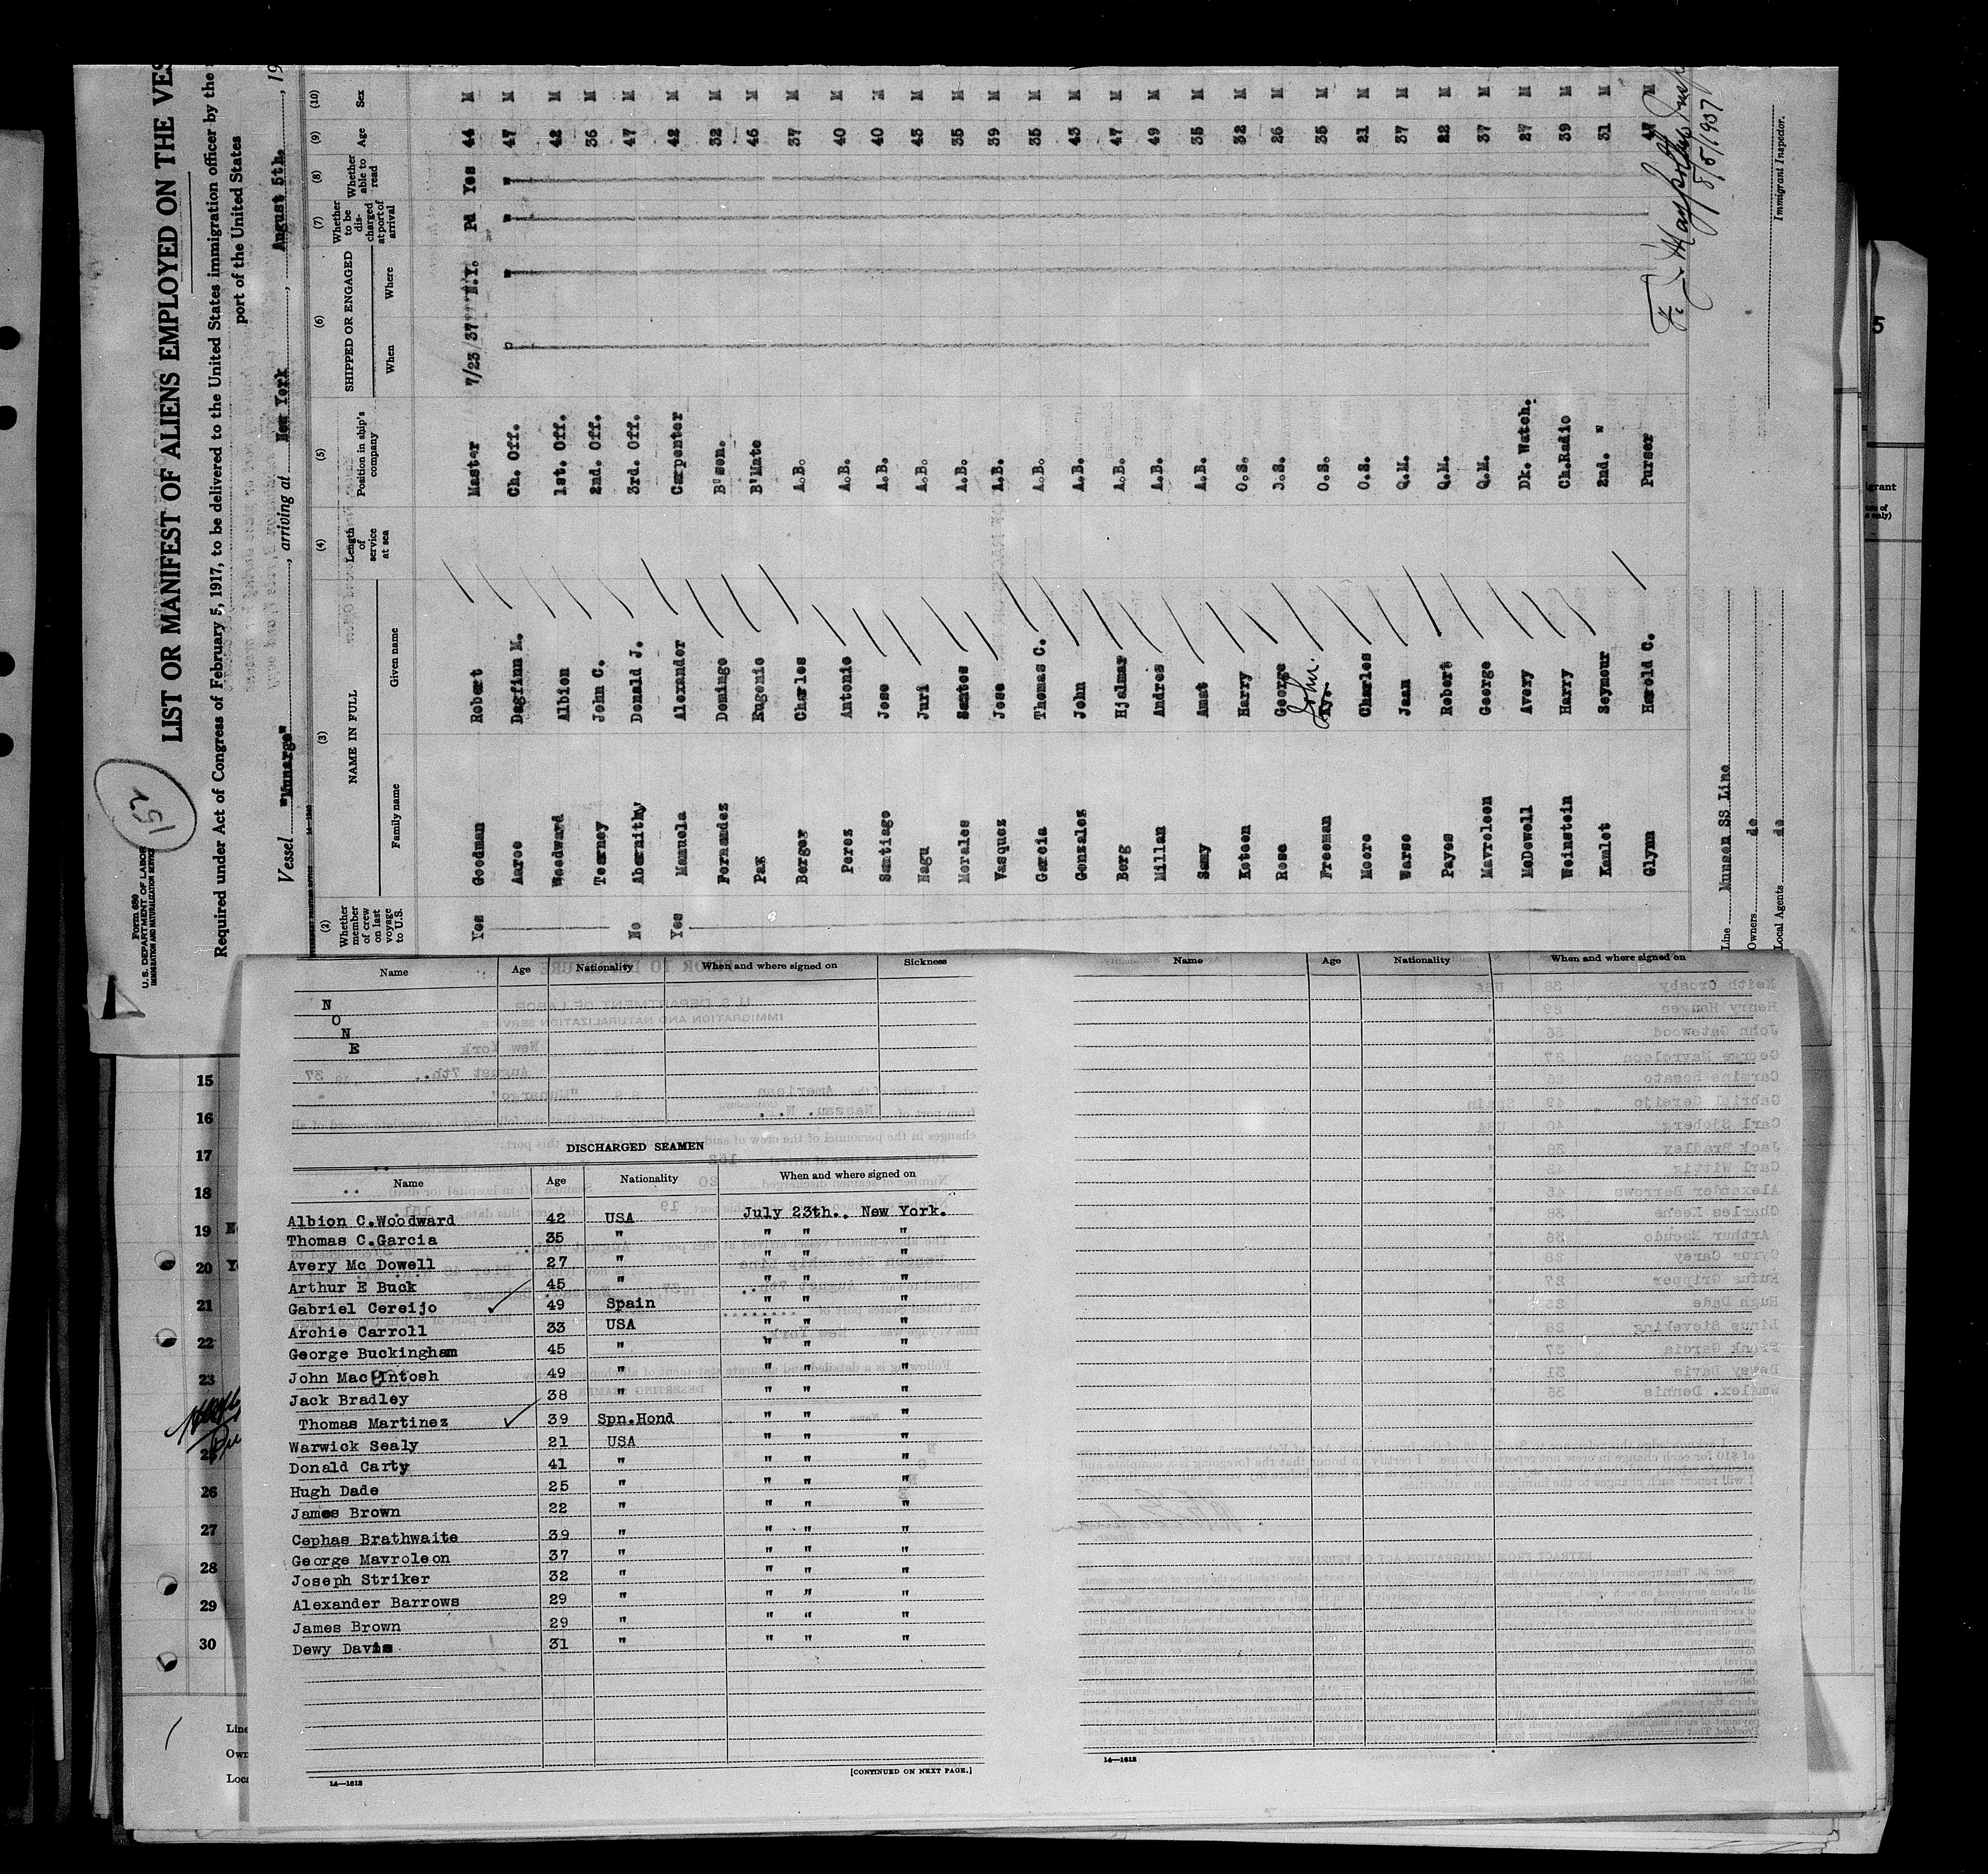 Form 680
U.S. DEPARTMENT OF LABOR
IMMIGRATION AND NATURALIZATION SERVICE
LIST OR MANIFEST OF ALIENS EMPLOYED ON THE VES
Required under Act of Congress of February 5, 1917, to be delivered to the United States immigration officer by the
port of the United States
Vessel "Munargo", arriving at New York, August 5th., 19
(2) (3) (4) (5) (6) (7) (8) (9) (10)
Whether member of crew on last voyage to U.S.
NAME IN FULL
Family name Given name
Length of service at sea
Position in ship's company
SHIPPED OR ENGAGED
When Where
Whether to be discharged at port of arrival
Whether able to read
Age
Sex
Yes Goodman Robert Master 7/23/37 N.Y. Pd Yes 44 M
Aaroe Dagfinn M. Ch. Off. " " " 47 M
Woodward Albion 1st. Off. 42 M
Tearney John C. 2nd. Off. 36 M
No Abernithy Donald J. 3rd. Off. 47 M
Yes Manuela Alexander Carpenter 42 M
Fernandez Domingo B'son. 32 M
Paz Eugenio B'Mate 46 M
Berger Charles A.B. 37 M
Perez Antonio A.B. 40 M
Santiago Jose A.B. 40 M
Hagu Juri A.B. 43 M
Morales Santos A.B. 35 M
Vasquez Jose A.B. 39 M
Garcia Thomas C. A.B. 35 M
Gonzalez John A.B. 43 M
Berg Hjalmar A.B. 47 M
Millan Andres A.B. 49 M
Samy Amat A.B. 35 M
Koteen Harry O.S. 32 M
Rose George O.S. 26 M
Freeman John O.S. 35 M
Moore Charles O.S. 21 M
Warse Jaan Q.M. 37 M
Payes Robert Q.M. 22 M
Mavroleon George Q.M. 37 M
McDowell Avery Dk. Watch. 27 M
Weinstein Harry Ch.Radio 39 M
Kamlet Seymour 2nd. " 31 M
Glynn Harold C. Purser 47 M
8/5/1937
Immigrant Inspector.
Line Munson SS Line
Owners do
Local Agents do
Name Age Nationality When and where signed on Sickness
N
O
N
E
DISCHARGED SEAMEN
Name Age Nationality When and where signed on
Albion C.Woodward 42 USA July 23th., New York.
Thomas C.Garcia 35 " " " "
Avery Mc Dowell 27 " " " "
Arthur E Buck 45 " " " "
Gabriel Cereijo 49 Spain " " "
Archie Carroll 33 USA " " "
George Buckingham 45 " " " "
John Mac Intosh 49 " " " "
Jack Bradley 38 " " " "
Thomas Martinez 39 Spn.Hond " " "
Warwick Sealy 21 USA " " "
Donald Carty 41 " " " "
Hugh Dade 25 " " " "
James Brown 22 " " " "
Cephas Brathwaite 39 " " " "
George Mavroleon 37 " " " "
Joseph Striker 32 " " " "
Alexander Barrows 29 " " " "
James Brown 29 " " " "
Dewy Davis 31 " " " "
14—1613
[CONTINUED ON NEXT PAGE.]
Name Age Nationality When and where signed on
14—1613
15
16
17
18
19
20
21
22
23
26
27
28
29
30
Line
Own
Loca
5